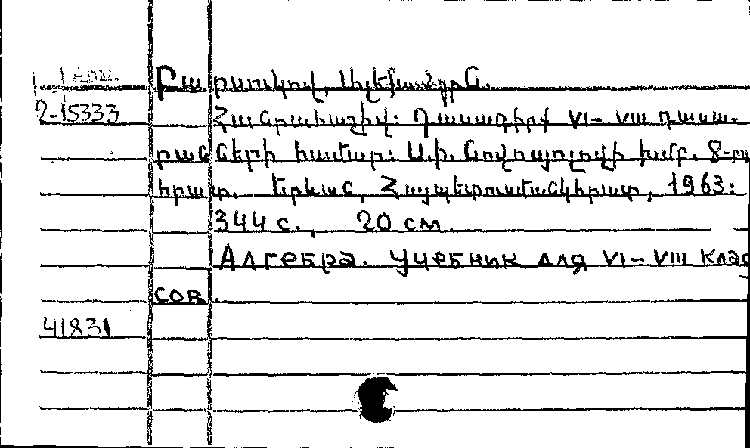 Բարսուկով, Ալեքսանդրն.
2-15333 Հանրահաշիվ: Դասագիրք VI–VIII դասա-
րանների համար: Ա.Ի. Նովոսյոլովի խմբ. 8-րդ
հրատ. Երևան, Հայպետուսմանկհրատ, 1963:
344 с., 20 см.
Алгебра. Учебник для VI–VIII клас
сов
41831